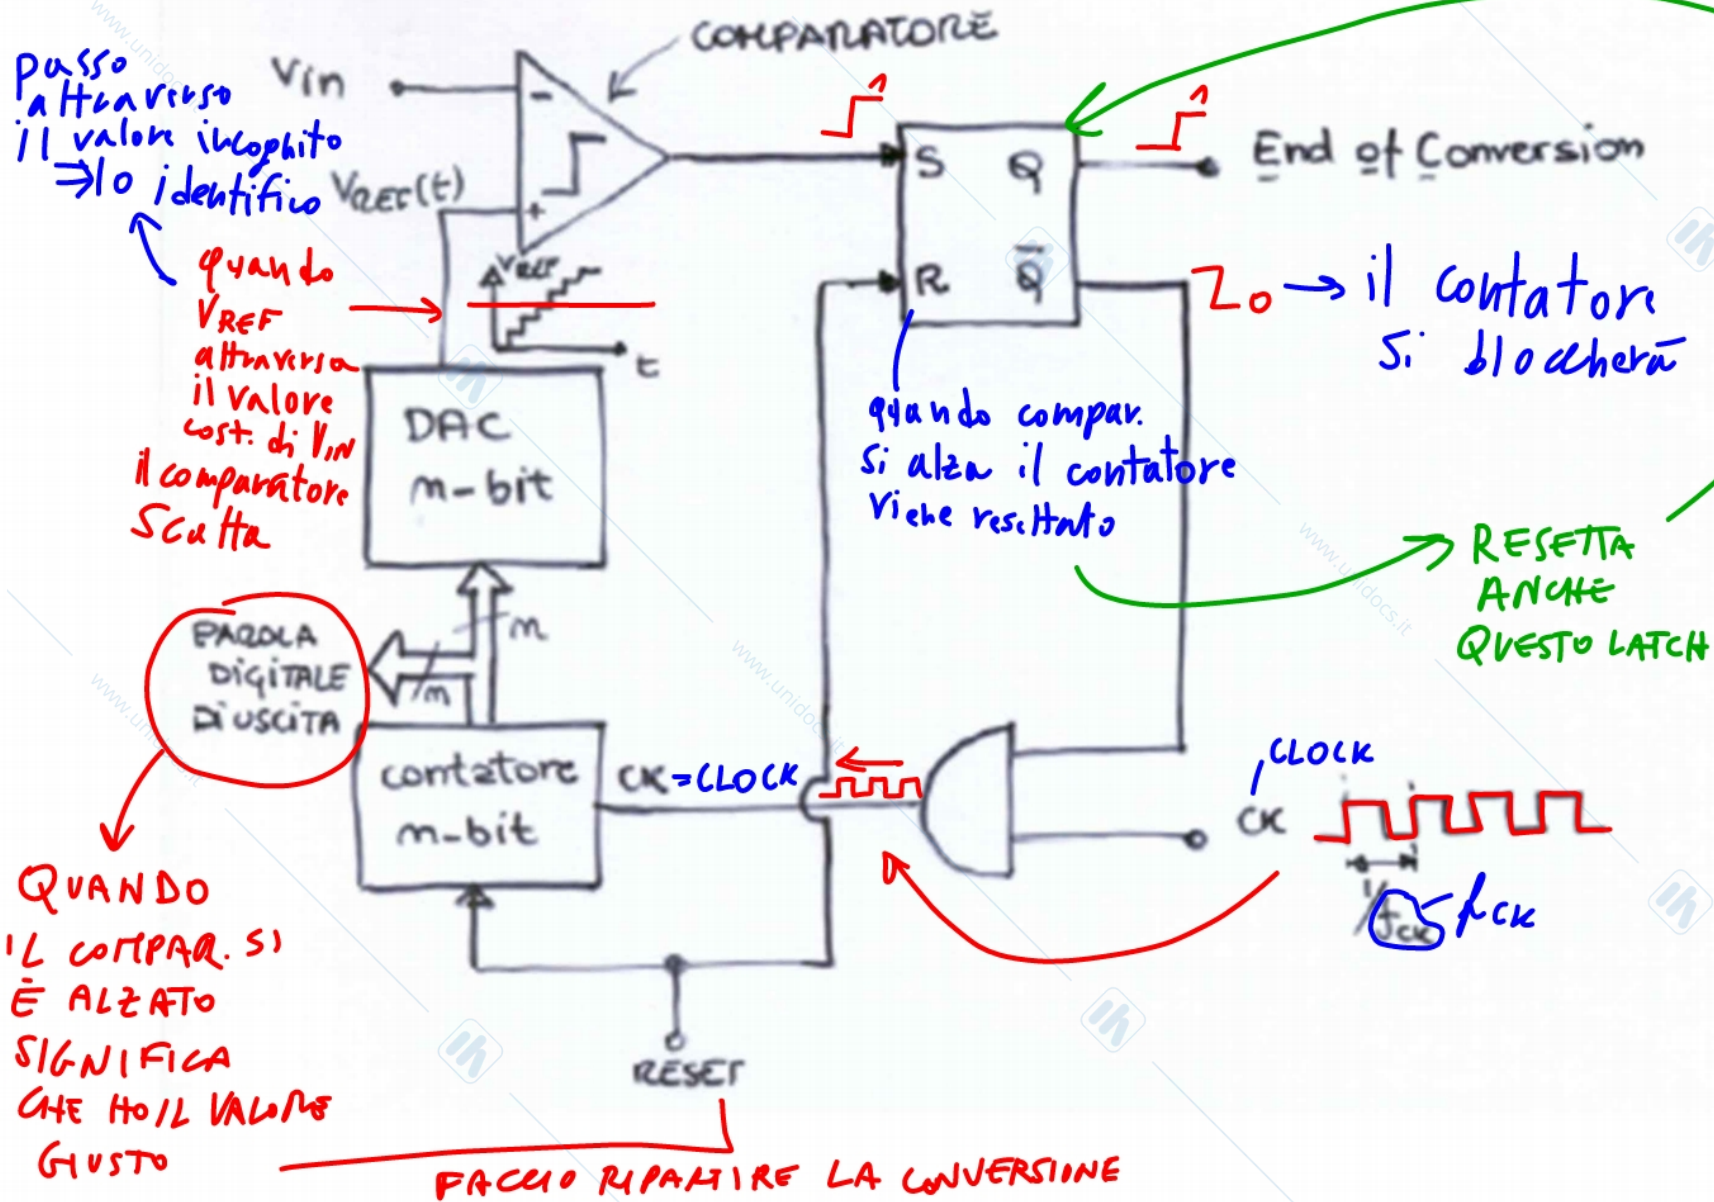 COMPARATORE
passo
attraverso
il valore incognito
⇒ lo identifico
Vin
VREF(t)
-
+
1
S Q
R Q̅
1
End of Conversion
0 → il contatore
si bloccherà
quando
VREF
attraversa
il valore
cost. di VIN
il comparatore
scatta
VREF
t
DAC
n-bit
quando compar.
si alza il contatore
viene resettato
RESETTA
ANCHE
QUESTO LATCH
n
n
PAROLA
DIGITALE
DI USCITA
contatore
n-bit
CK = CLOCK
CLOCK
CK
1/fCK
fCK
QUANDO
IL COMPAR. SI
È ALZATO
SIGNIFICA
CHE HO IL VALORE
GIUSTO
RESET
FACCIO RIPARTIRE LA CONVERSIONE
www.unidocs.it
www.unidocs.it
www.unidocs.it
www.unidocs.it